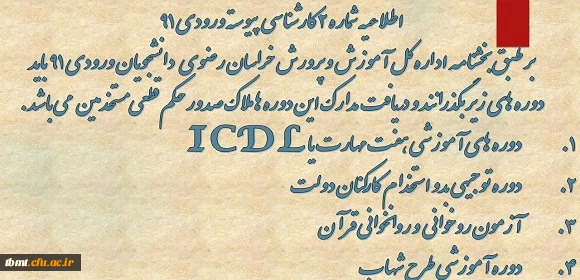 اطلاعیه شماره ۲ کارشناسی پیوسته ورودی ۹۱
بر طبق بخشنامه اداره کل آموزش و پرورش خراسان رضوی دانشجویان ورودی ۹۱ باید
دوره های زیر بگذرانند و دریافت مدارک این دوره ها ملاک صدور حکم قطعی مستخدمین می باشد.
۱. دوره های آموزشی هفت مهارت یا ICDL
۲. دوره توجیهی بدو استخدام کارکنان دولت
۳. آزمون روخوانی و روانخوانی قرآن
۴. دوره آموزشی طرح شهاب
tbmt.cfu.ac.ir